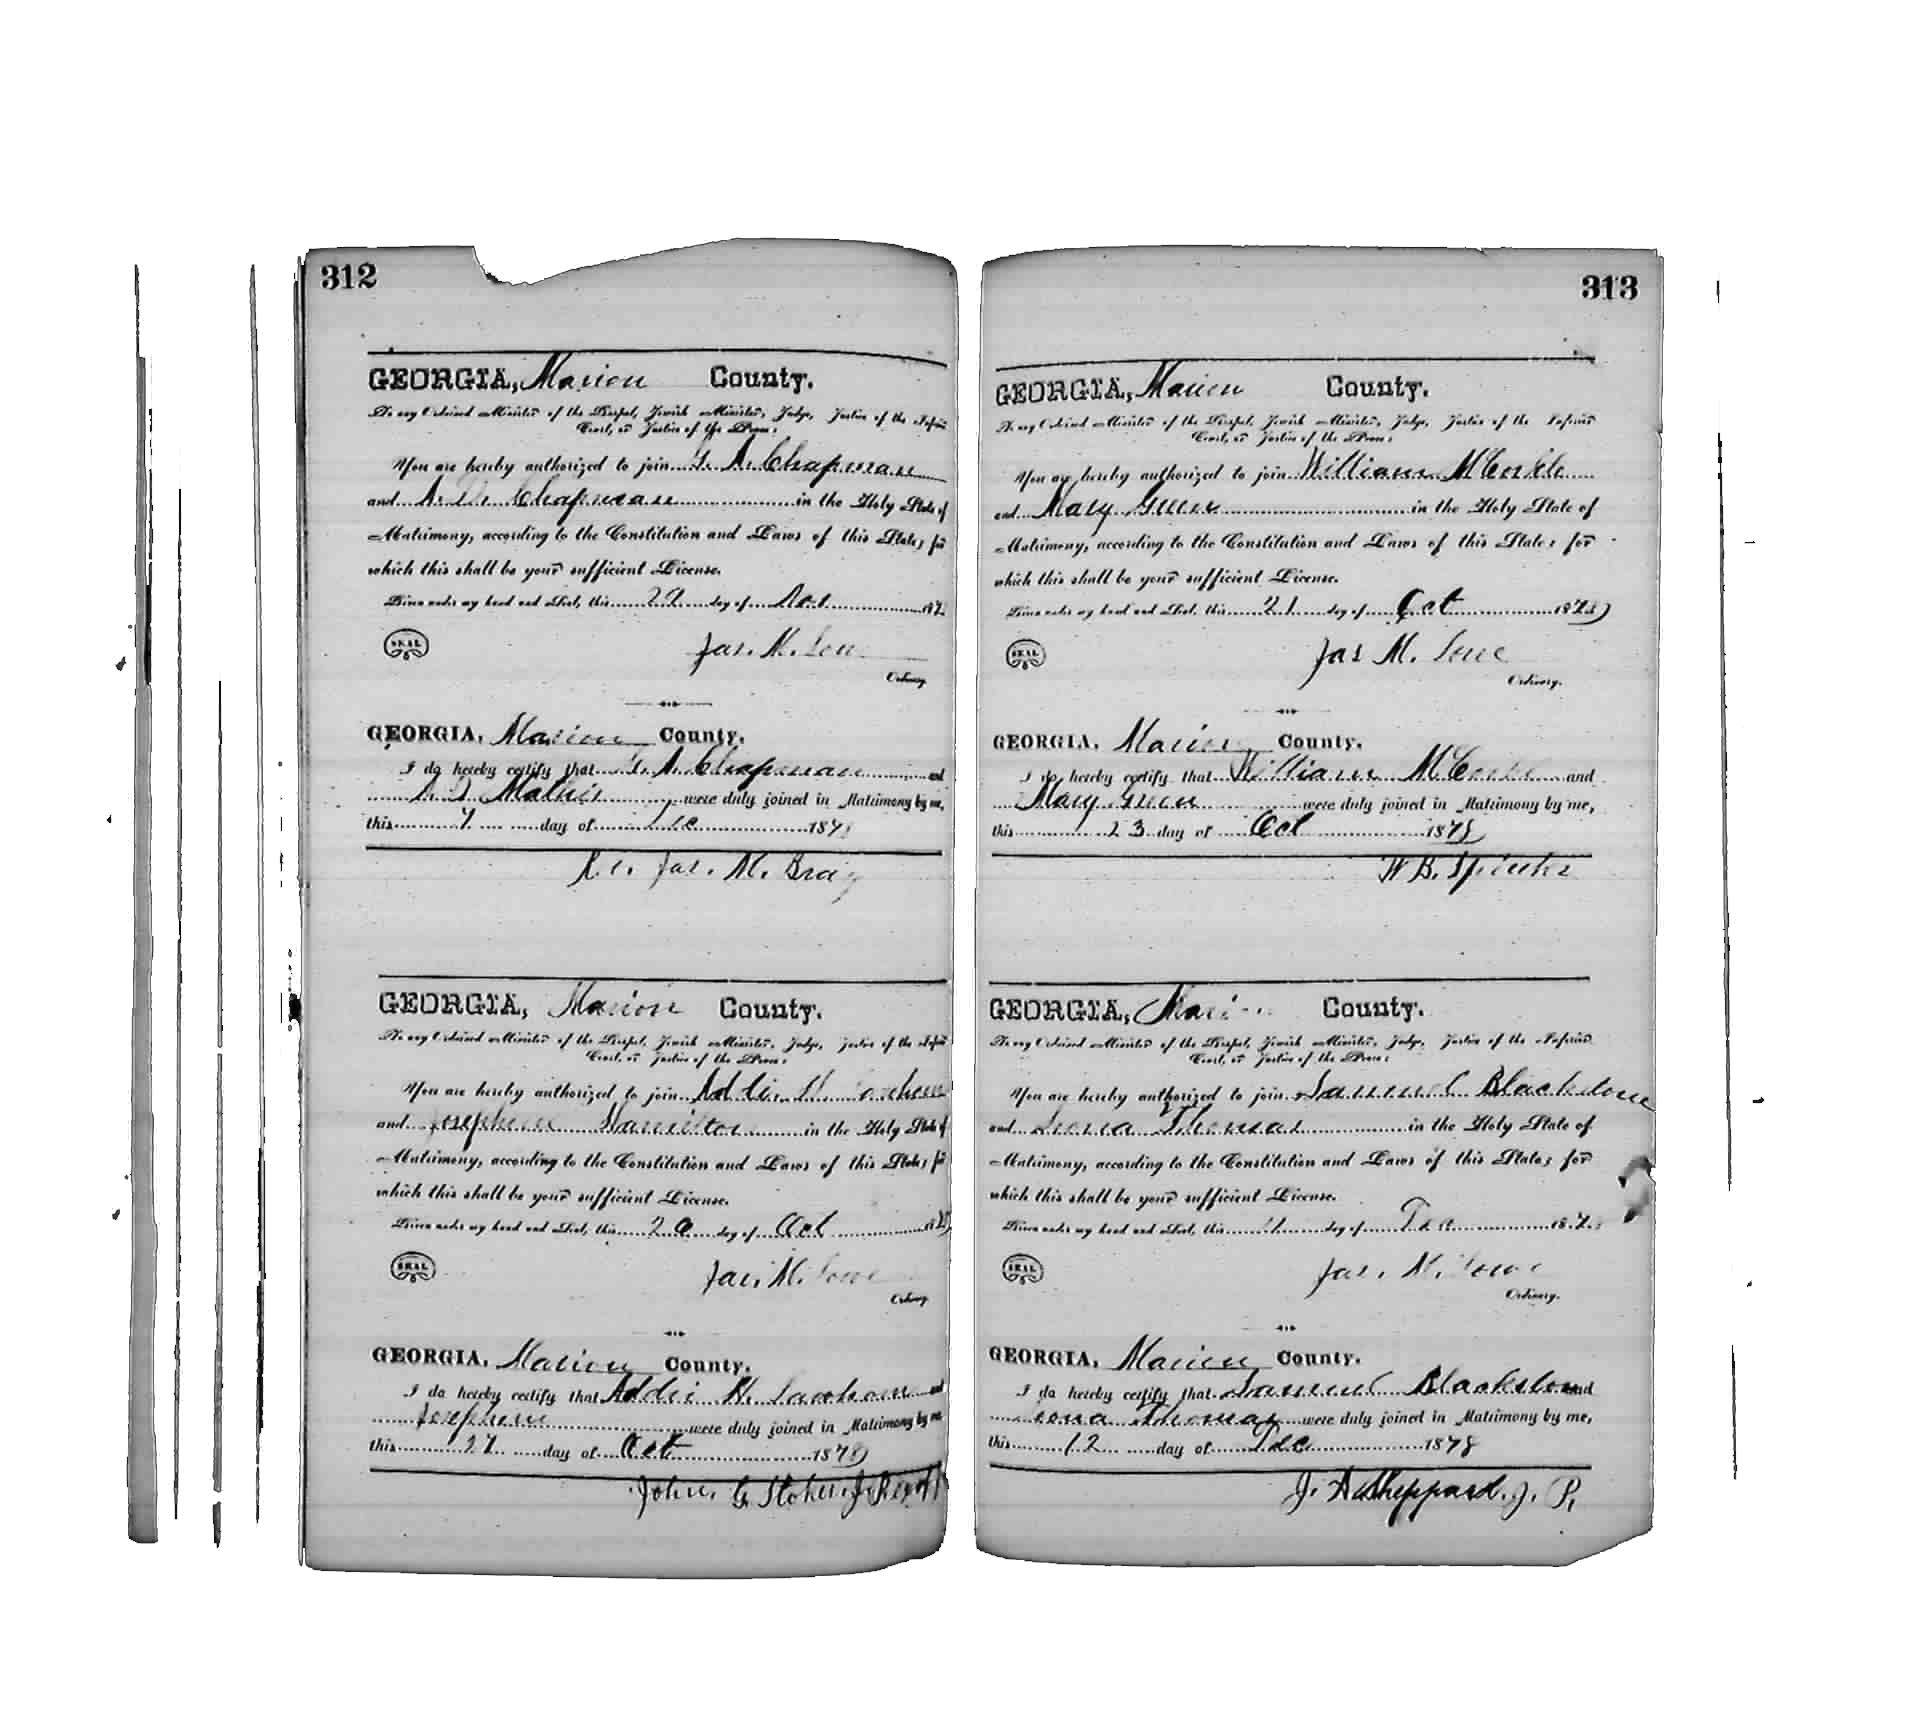 312
GEORGIA, Marion County.
To any Ordained Minister of the Gospel, Jewish Minister, Judge, Justice of the Inferior
Court, or Justice of the Peace:
You are hereby authorized to join A. Chapman
and A. Chapman in the Holy State of
Matrimony, according to the Constitution and Laws of this State; for
which this shall be your sufficient License.
Given under my hand and Seal, this day of 187
SEAL
Jas. M. Lowe
Ordinary.
GEORGIA, Marion County.
I do hereby certify that A. Chapman and
Mathis were duly joined in Matrimony by me,
this 7 day of Dec 187
Jas. M. Bray
GEORGIA, Marion County.
To any Ordained Minister of the Gospel, Jewish Minister, Judge, Justice of the Inferior
Court, or Justice of the Peace:
You are hereby authorized to join H.
and Josephine Hamilton in the Holy State of
Matrimony, according to the Constitution and Laws of this State; for
which this shall be your sufficient License.
Given under my hand and Seal, this day of Oct 187
SEAL
Jas. M. Lowe
Ordinary.
GEORGIA, Marion County.
I do hereby certify that Addie H. and
Josephine were duly joined in Matrimony by me,
this 27 day of Oct 1878
John. G. Stokes. J.P.
313
GEORGIA, Marion County.
To any Ordained Minister of the Gospel, Jewish Minister, Judge, Justice of the Inferior
Court, or Justice of the Peace:
You are hereby authorized to join William McCorkle
and Mary Green in the Holy State of
Matrimony, according to the Constitution and Laws of this State; for
which this shall be your sufficient License.
Given under my hand and Seal, this 21 day of Oct 1878
SEAL
Jas M. Lowe
Ordinary.
GEORGIA, Marion County.
I do hereby certify that William McCorkle and
Mary Green were duly joined in Matrimony by me,
this 23 day of Oct 1878
W B.
GEORGIA, Marion County.
To any Ordained Minister of the Gospel, Jewish Minister, Judge, Justice of the Inferior
Court, or Justice of the Peace:
You are hereby authorized to join Samuel Blackstone
and Thomas in the Holy State of
Matrimony, according to the Constitution and Laws of this State; for
which this shall be your sufficient License.
Given under my hand and Seal, this 11 day of Dec 187
SEAL
Jas. M. Lowe
Ordinary.
GEORGIA, Marion County.
I do hereby certify that Samuel Blackstone and
Thomas were duly joined in Matrimony by me,
this 12 day of Dec 1878
Sheppard. J. P.